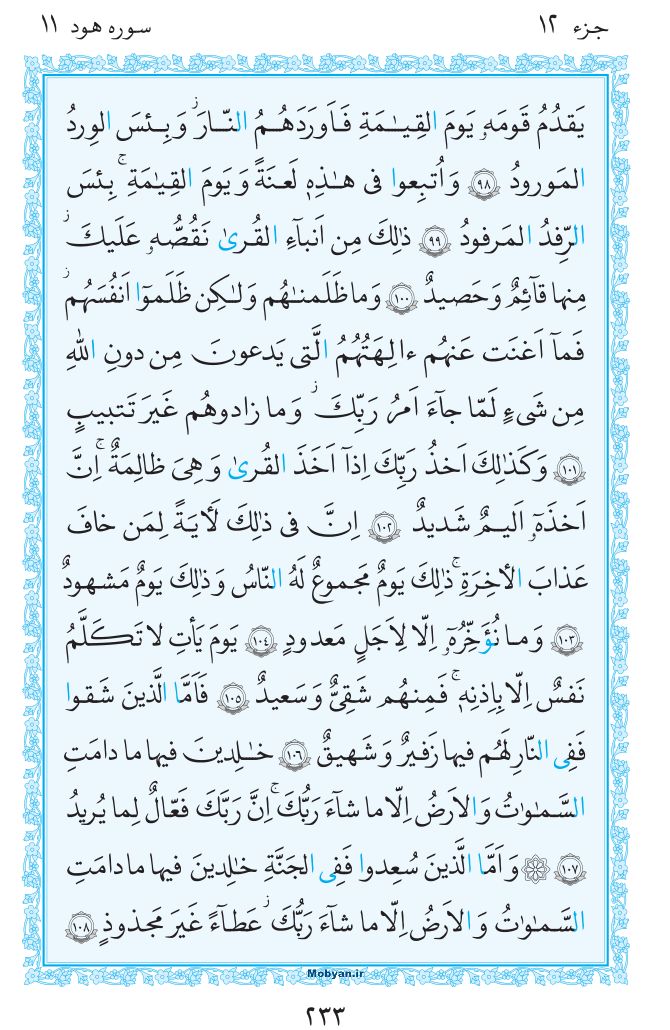 جزء ۱۲
سوره هود ۱۱
يَقدُمُ قَومَهٗ يَومَ القِيـٰمَةِ فَاَورَدَهُـمُ النّـارَ ۖ وَبِـئسَ الوِردُ
المَورودُ ﴿۹۸﴾ وَاُتبِعوا فى هـٰذِهٖ لَعنَةً وَيَومَ القِيـٰمَةِ ۚ بِئسَ
الرِّفدُ المَرفودُ ﴿۹۹﴾ ذٰلِكَ مِن اَنباۤءِ القُرىٰ نَقُصُّهٗ عَلَيكَ ۖ
مِنها قاۤئِمٌ وَحَصيدٌ ﴿۱۰۰﴾ وَما ظَلَمنـٰهُم وَلـٰكِن ظَلَموۤا اَنفُسَهُم ۖ
فَماۤ اَغنَت عَنهُم ءالِهَتُهُمُ الَّتى يَدعونَ مِن دونِ اللّٰهِ
مِن شَىءٍ لَمّا جاۤءَ اَمرُ رَبِّكَ ۖ وَما زادوهُم غَيرَ تَتبيبٍ
﴿۱۰۱﴾ وَكَذٰلِكَ اَخذُ رَبِّكَ اِذاۤ اَخَذَ القُرىٰ وَهِىَ ظالِمَةٌ ۚ اِنَّ
اَخذَهٗۤ اَليـمٌ شَديدٌ ﴿۱۰۲﴾ اِنَّ فى ذٰلِكَ لَأيَةً لِمَن خافَ
عَذابَ الأخِرَةِ ۚ ذٰلِكَ يَومٌ مَجموعٌ لَهُ النّاسُ وَذٰلِكَ يَومٌ مَشهودٌ
﴿۱۰۳﴾ وَمـا نُؤَخِّرُهٗۤ اِلّا لِاَجَلٍ مَعدودٍ ﴿۱۰۴﴾ يَومَ يَأتِ لا تَكَلَّمُ
نَفسٌ اِلّا بِاِذنِهٖ ۚ فَمِنهُم شَقِىٌّ وَسَعيدٌ ﴿۱۰۵﴾ فَاَمَّا الَّذينَ شَقوا
فَفِى النّارِ لَهُم فيها زَفيرٌ وَشَهيقٌ ﴿۱۰۶﴾ خـٰلِدينَ فيها ما دامَتِ
السَّمـٰوٰتُ وَالاَرضُ اِلّا ما شاۤءَ رَبُّكَ ۚ اِنَّ رَبَّكَ فَعّالٌ لِما يُريدُ
﴿۱۰۷﴾ وَاَمَّا الَّذينَ سُعِدوا فَفِى الجَنَّةِ خـٰلِدينَ فيها ما دامَتِ
السَّمـٰوٰتُ وَالاَرضُ اِلّا ما شاۤءَ رَبُّكَ ۖ عَطاۤءً غَيرَ مَجذوذٍ ﴿۱۰۸﴾
Mobyan.ir
۲۳۳